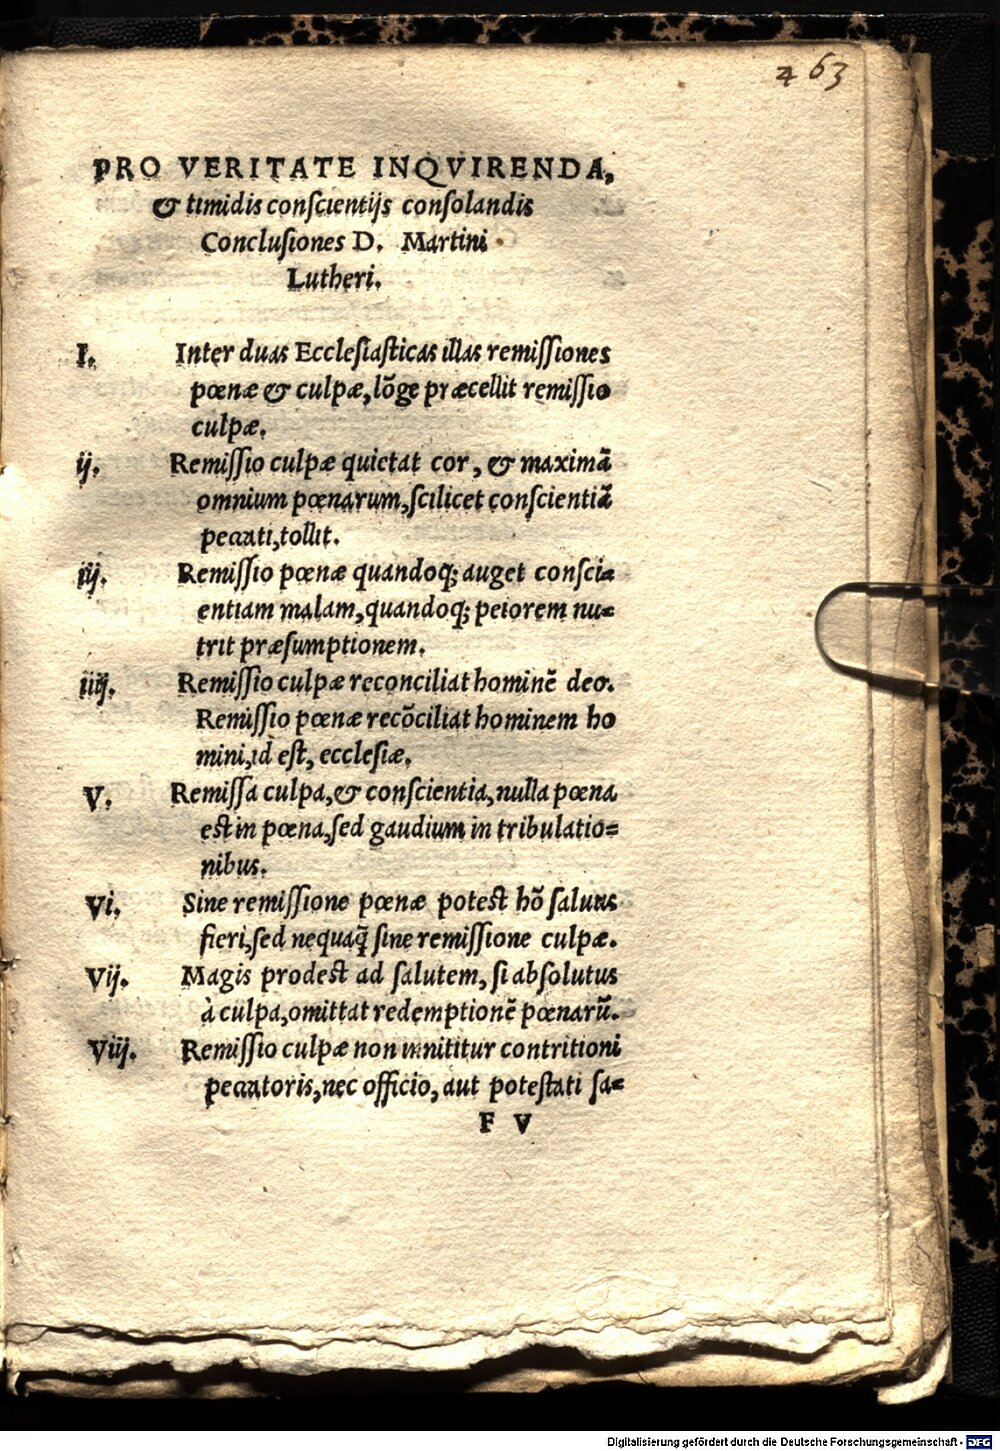 463
PRO VERITATE INQVIRENDA,
& timidis conſcientijs conſolandis
Concluſiones D. Martini
Lutheri.
I. Inter duas Eccleſiaſticas illas remiſſiones
pœnæ & culpæ, lõge præcellit remiſſio
culpæ.
ij. Remiſſio culpæ quietat cor, & maximã
omnium pœnarum, ſcilicet conſcientiã
peccati, tollit.
iij. Remiſſio pœnæ quandoq; auget conſci⸗
entiam malam, quandoq; peiorem nu⸗
trit præſumptionem.
iiij. Remiſſio culpæ reconciliat hominẽ deo.
Remiſſio pœnæ recõciliat hominem ho
mini, id eſt, eccleſiæ.
V. Remiſſa culpa, & conſcientia, nulla pœna
eſt in pœna, ſed gaudium in tribulatio⸗
nibus.
Vi. Sine remiſſione pœnæ poteſt hõ ſaluus
fieri, ſed nequaq̃ ſine remiſſione culpæ.
Vij. Magis prodeſt ad ſalutem, ſi abſolutus
à culpa, omittat redemptionẽ pœnarũ.
Viij. Remiſſio culpæ non innititur contritioni
peccatoris, nec officio, aut poteſtati ſa⸗
F V
Digitalisierung gefördert durch die Deutsche Forschungsgemeinschaft - DFG